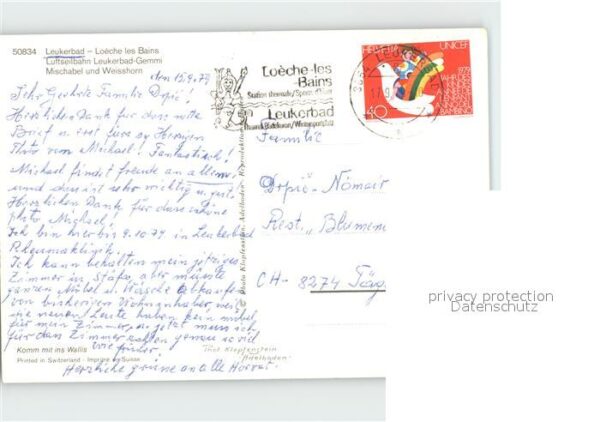 50834 Leukerbad – Loèche les Bains
Luftseilbahn Leukerbad-Gemmi
Mischabel und Weisshorn
den 15.9.79
Sehr Geehrte Familie Drpić!
Herzlichen Dank für dass nette
Brief und
Photo vom Michael! Fantastisch!
Michael findet freude an allem
und dass ist sehr wichtig u. gut.
Herzlichen Dank für dass schöne
photo Michael!
Ich bin hier bis 9.10.79 in Leukerbad
Rheumaklinik.
Ich kann behalten mein jetziges
Zimmer in Stäfa, aber müsste
ganzen Möbel u. Wäsche abkaufen
von bisherigen Wohnunghaber, weil
die neuen Leute haben kein möbel
für mein Zimmer, u. jetzt muss ich
für dass Zimmer zahlen genau so viel
wie früher!
Herzliche grüsse an alle Horvat.
Komm mit ins Wallis
Printed in Switzerland - Imprimé en Suisse
© Photo Klopfenstein, Adelboden - Reproduktion
Loèche-les
-Bains
Station thermale/Sports d'hiver
Leukerbad
Thermalbadekurort/Wintersportplatz
HELVETIA
UNICEF
1979
40
Familie
Drpić-Nomair
Rest. „Blumen
CH- 8274 Täg
Phot Klopfenstein
Adelboden
privacy protection
Datenschutz